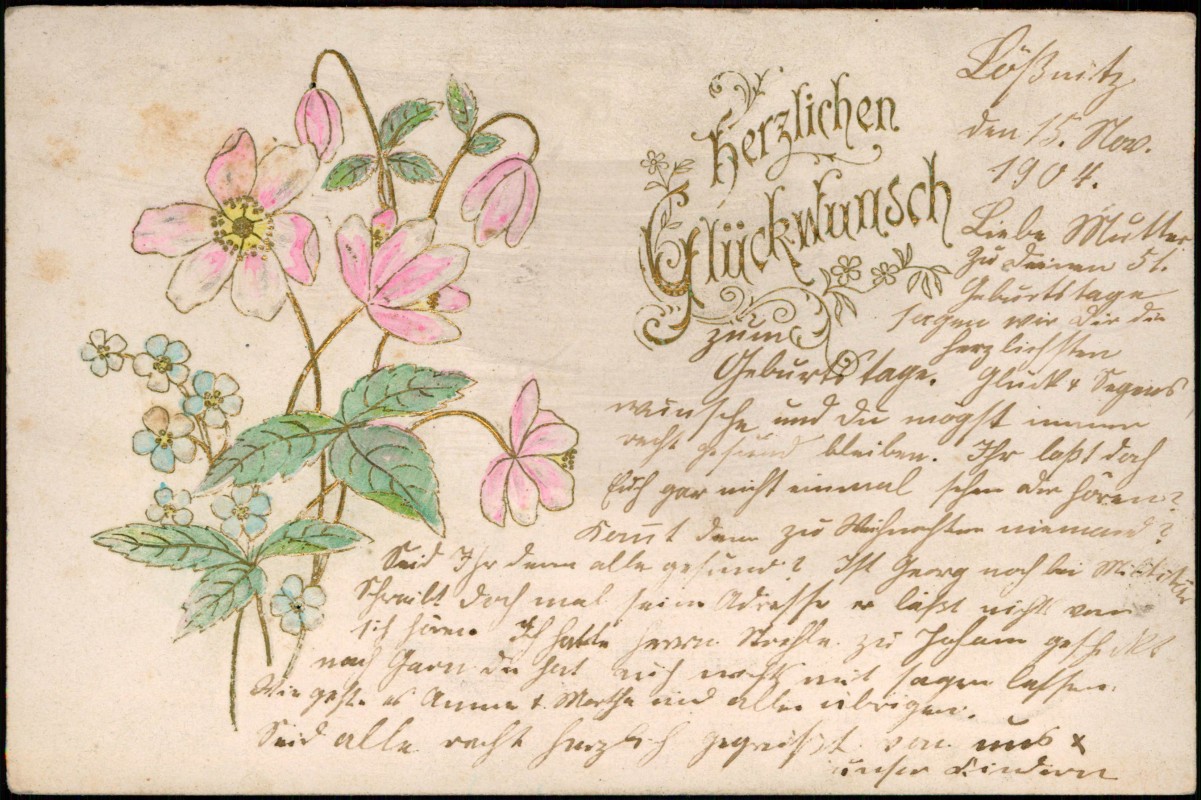 Herzlichen
Glückwunsch
Lößnitz
den 15. Nov.
1904.
Liebe Mutter,
zu Deinem 51.
Geburtstage
sagen wir Dir die
herzlichsten
zum
Geburtstage. Glück & Segens
wünsche und Du mögst immer
recht gesund bleiben. Ihr laßt doch
Euch gar nicht einmal sehen oder hören?
Kommt denn zu Weihnachten niemand?
Seid Ihr denn alle gesund? Ist Georg noch bei Militär
Schreibt doch mal seine Adresse er läßt nichts von
sich hören. Ich hatte Herrn zu Johann geschickt
nach Garn der hat auch nichts mit sagen lassen.
Wie geht es Anna & Martha und allen übrigen.
Seid alle recht herzlich gegrüßt von uns &
unser Kindern